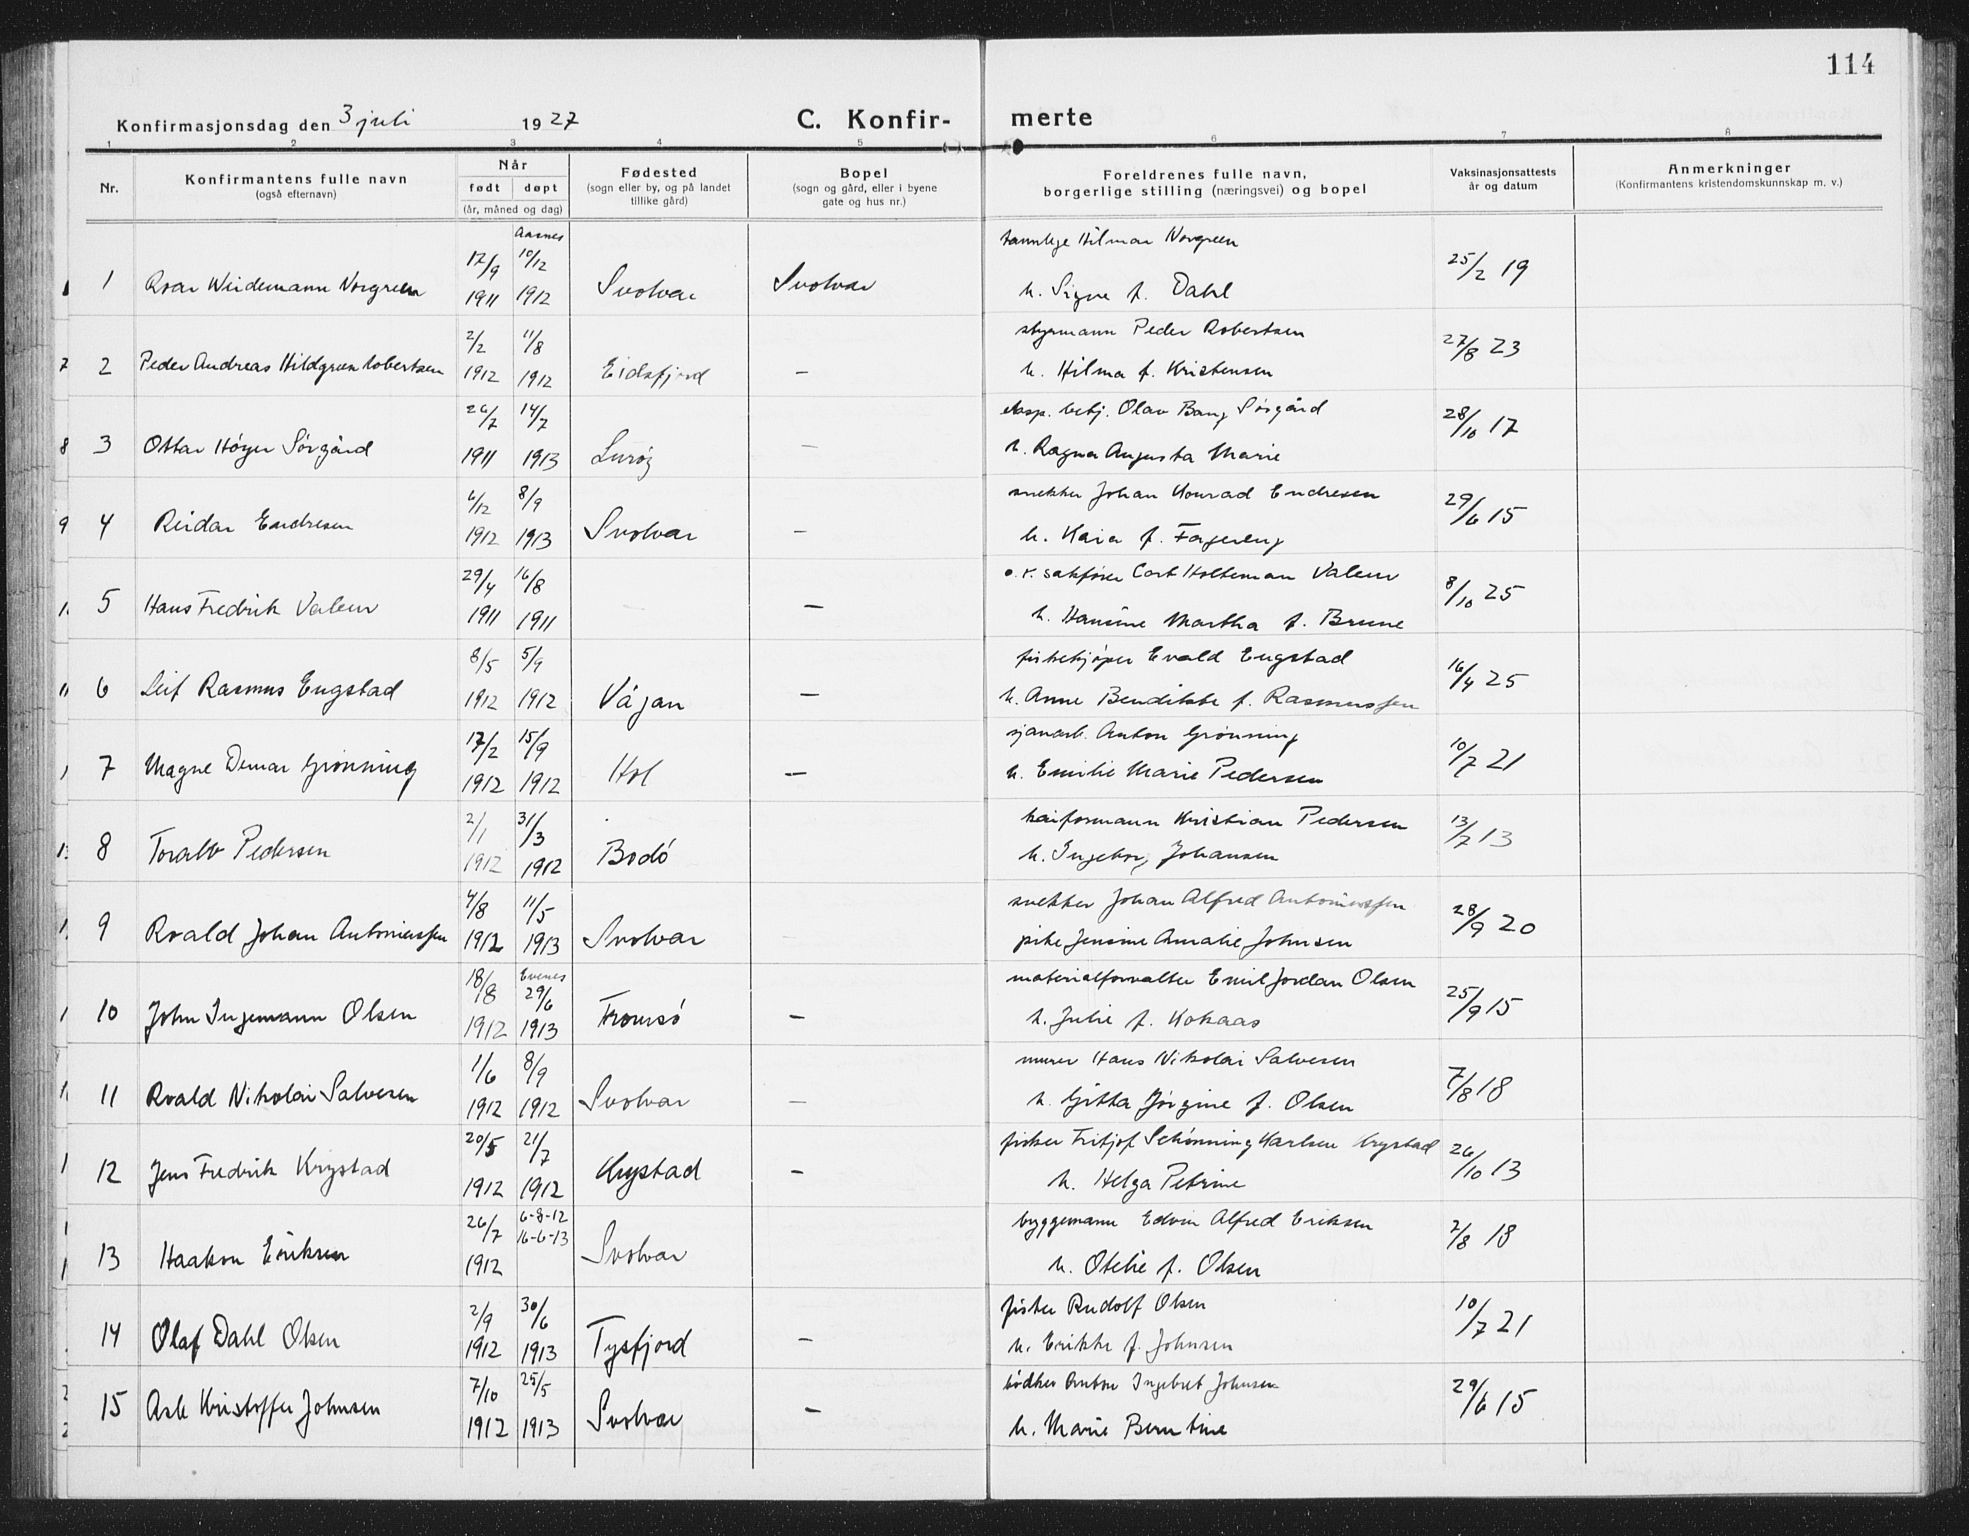 114
Konfirmasjonsdag den 3 juli 1927
C. Konfirmerte
1 2 3 4 5 6 7 8
Nr.
Konfirmantens fulle navn
(også efternavn)
Når
født døpt
(år, måned og dag)
Fødested
(sogn eller by, og på landet
tillike gård)
Bopel
(sogn og gård, eller i byene
gate og hus nr.)
Foreldrenes fulle navn,
borgerlige stilling (næringsvei) og bopel
Vaksinasjonsattests
år og datum
Anmerkninger
(Konfirmantens kristendomskunnskap m. v.)
Aasnes
17/9 10/12 tannlege Hilmar Norgreen
1 Roar Weidemann Norgreen 1911 1912 Svolvær Svolvær h. Signe f. Dahl 25/2 19
2/2 11/8 styrmann Peder Robertsen
2 Peder Andreas Hildgren Robertsen 1912 1912 Eidsfjord — h. Hilma f. Kristensen 27/8 23
26/7 14/7 eksp. betj. Olav Bang Sørgård
3 Ottar Høyer Sørgård 1911 1913 Lurøy — h. Ragna Augusta Marie 28/10 17
6/12 8/9 snekker Johan Konrad Endresen
4 Reidar Endresen 1912 1913 Svolvær — h. Kaia f. Fagereng 29/6 15
29/4 16/8 o.r. sakfører Carl Holteman Valeur
5 Hans Fredrik Valeur 1911 1911 — h. Hansine Martha f. Brune 8/10 25
8/5 5/9 fiskekjøper Evald Engstad
6 Leif Rasmus Engstad 1912 1912 Vågan — h. Anne Bendikte f. Rasmussen 16/4 25
17/2 15/9 sjauarb. Anton Grønning
7 Magne Demar Grønning 1912 1912 Hol — h. Emilie Marie Pedersen 10/7 21
2/1 31/3 kaiformann Kristian Pedersen
8 Toralv Pedersen 1912 1912 Bodø h. Ingeborg Johansen 13/7 13
4/8 11/5 snekker Johan Alfred Antoniussen
9 Roald Johan Antoniussen 1912 1913 Svolvær pike Jensine Amalie Johnsen 28/9 20
Evenes
18/8 29/6 materialforvalter Emil Jordan Olsen
10 John Ingemann Olsen 1912 1913 Tromsø — h. Julie f. Kokaas 25/9 15
1/6 8/9 murer Hans Nikolai Salvesen
11 Roald Nikolai Salvesen 1912 1912 Svolvær — h. Gitta Jørgine f. Olsen 7/8 18
20/5 21/7 fisker Fritjof Schønning Karlsen Krystad
12 Jens Fredrik Krystad 1912 1912 Krystad — h. Helga Petrine 26/10 13
26/7 6-8-12 byggemann Edvin Alfred Eriksen
16-6-13
13 Haakon Eriksen 1912 Svolvær h. Otelie f. Olsen 2/8 18
2/9 30/6 fisker Rudolf Olsen
14 Olaf Dahl Olsen 1912 1913 Tysfjord — h. Erikke f. Johnsen 10/7 21
7/10 25/5 bødker Anton Ingebret Johnsen
15 Asle Kristoffer Johnsen 1912 1913 Svolvær — h. Marie Berntine 29/6 15